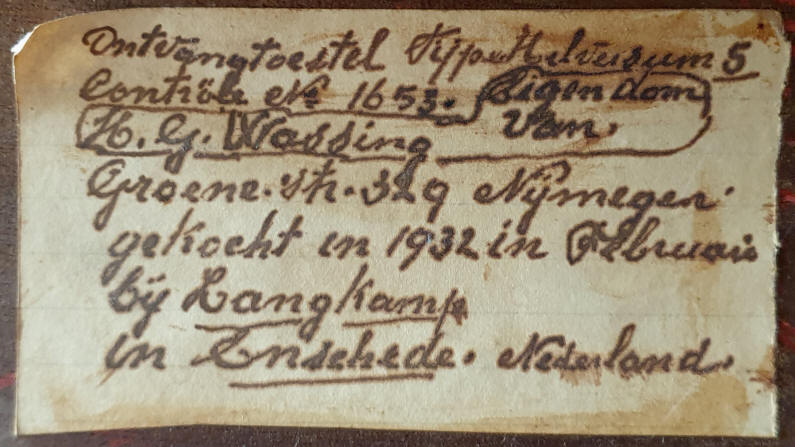 Ontvangtoestel Type Hilversum 5
Contrôle No 1653. Eigendom
H. G. Wassing van.
Groene. str. 329 Nijmegen.
gekocht in 1932 in Februari
bij Langkamp
in Enschede. Nederland.